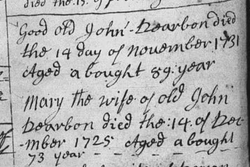 Good old John Dearbon died
the 14 day of November 1731
Aged a bought 89: year
Mary the wife of old John
Dearbon died the:14: of Dec-
mber 1725 Aged a bought
73 year